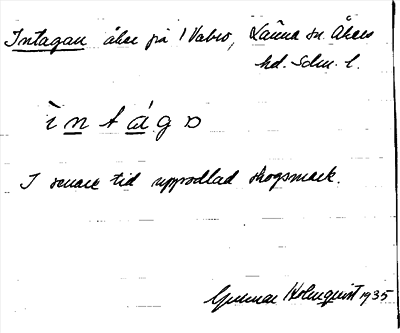 Intagan åker på 1 Valsvo, Länna sn. Åkers
hd. Sdm. l.
ìntágɷ
I senare tid uppodlad skogsmark.
Gunnar Holmquist 1935